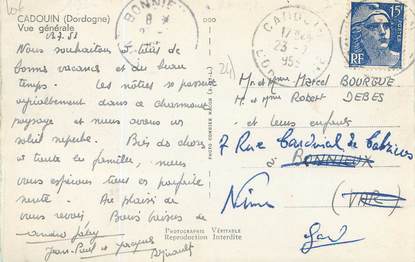 CADOUIN (Dordogne)
Vue générale
Nous souhaitons à tous de
bonnes vacances et du beau
temps. Les nôtres se passent
agréablement dans ce charmant
paysage et nous avons un
soleil superbe. Bien des choses
à toute la famille, nous
vous espérons tous en parfaite
santé. Au plaisir de
vous revoir. Bons baisers de
Jean-Paul et Jacques
BONNIEUX
CADOUIN
15F
Mr et Mme Marcel BOURGUE
Mr et Mme Robert DEBES
et leurs enfants
7 Rue Cardinal de Cabrières
BONNIEUX
Nîmes (VAR)
Gard
PHOTOGRAPHIE VÉRITABLE
Reproduction Interdite